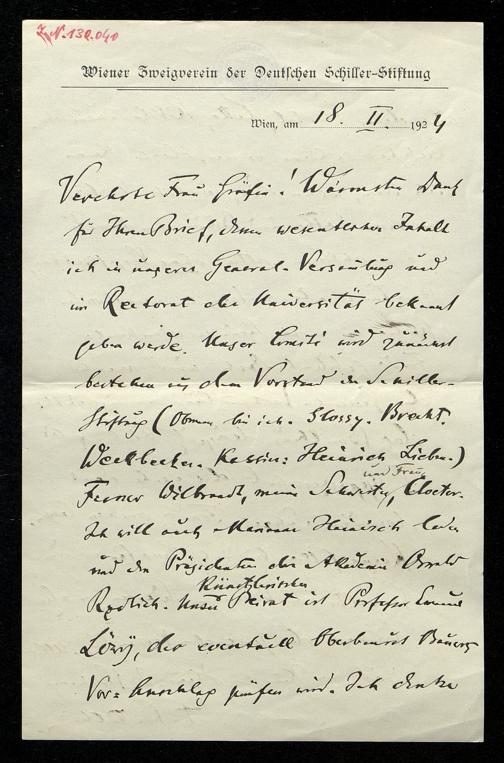 I.N. 130.040
Wiener Zweigverein der Deutschen Schiller-Stiftung
Wien, am 18. II. 1924
Verehrte Frau Gräfin! Wärmsten Dank
für Ihren Brief, dessen wesentlichen Inhalt
ich in unserer General-Versammlung und
im Rectorat der Universität bekannt
geben werde. Unser Comité wird zunächst
bestehen aus dem Vorstand der Schiller-
Stiftung (Obmann bin ich. Glossy. Brecht.
Weckbecker. Kassier: Heinrich Lieben.)
und Frau
Ferner Wilbrandt, meine Schwester, Cloeter.
Ich will auch Marianne Hainisch laden
und den Präsidenten der Akademie Oswald
künstlerischer
Redlich. Unser Beirat ist Professor Emanuel
Löwy, der eventuell Oberbaurat Bauers
Vor-Anschlag prüfen wird. Ich denke